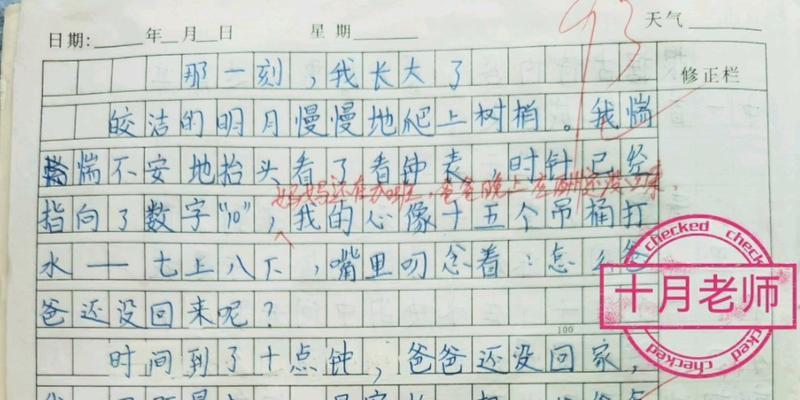 93
日期: 年 月 日 星期 天气
修正栏
那一刻，我长大了
皎洁的明月慢慢地爬上树梢。我惴
惴不安地抬头看了看钟表，时针已经
妈妈还在加班，爸爸晚上去
指向了数字“10”，我的心像十五个吊桶打
水——七上八下，嘴里叨念着：怎么爸
爸还没回来呢？
100
时间到了十点钟，爸爸还没回家，
checked checked
十月老师
checked checked